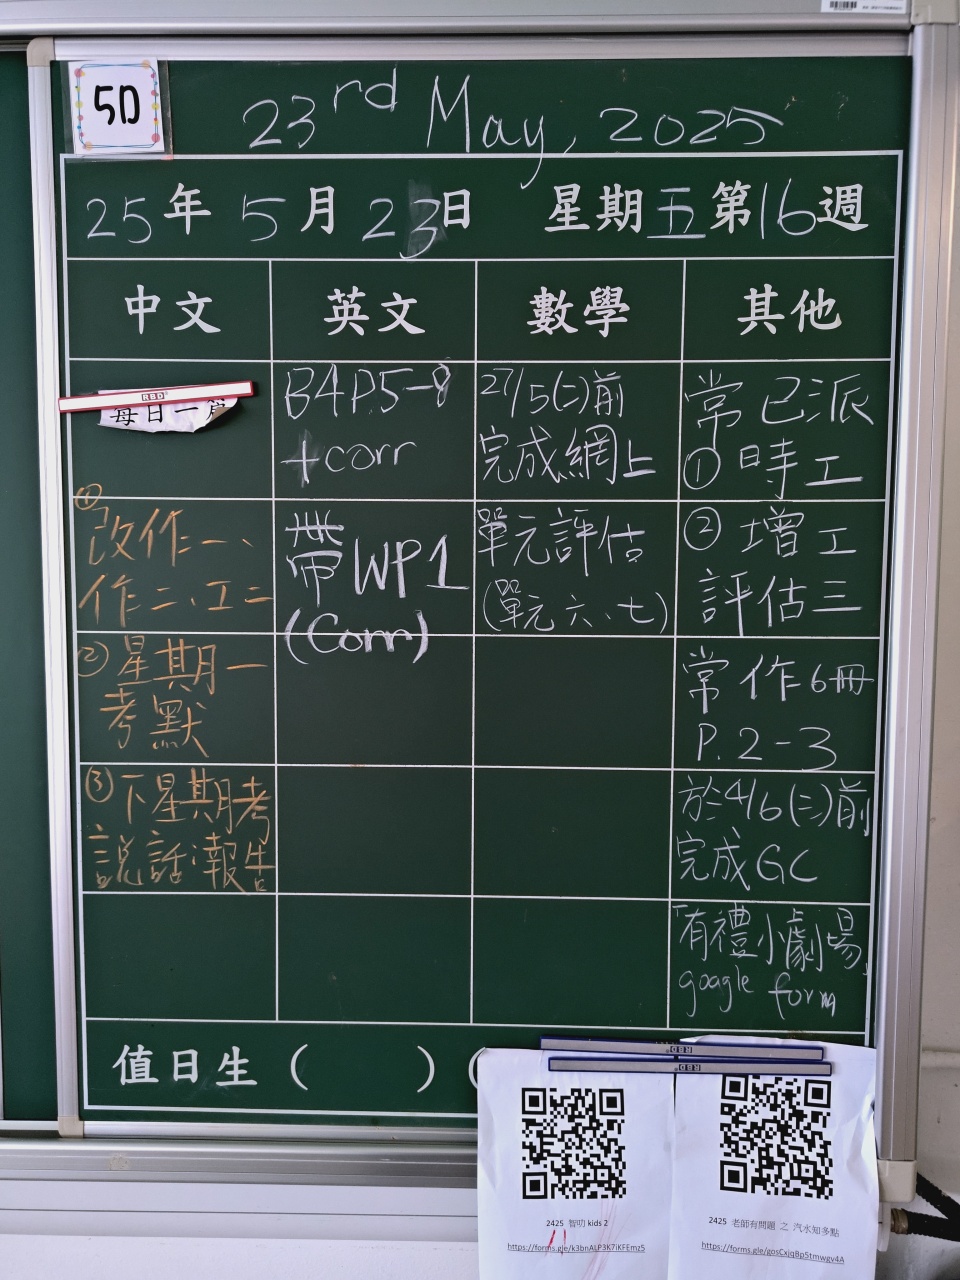 5D
23rd May, 2025
25年 5月 23日 星期五第16週
中文
英文
數學
其他
RBD
每日一
①
改作一、
作二、工二
② 星期一
考默
③下星期考
說話:報告
B4P.5-8
+corr
帶WP1
(Corr)
27/5(二)前
完成網上
單元評估
(單元六、七)
常 已派
① 時工
② 增工
評估三
常 作6冊
P.2-3
於4/6(三)前
完成GC
「有禮小劇場」
google form
值日生 ( ) (
RBD
RBD
2425 智叻 kids 2
https://forms.gle/k3bnALP3K7iKFEmz5
2425 老師有問題 之 汽水知多點
https://forms.gle/gosCxjqBp5tmwgv4A